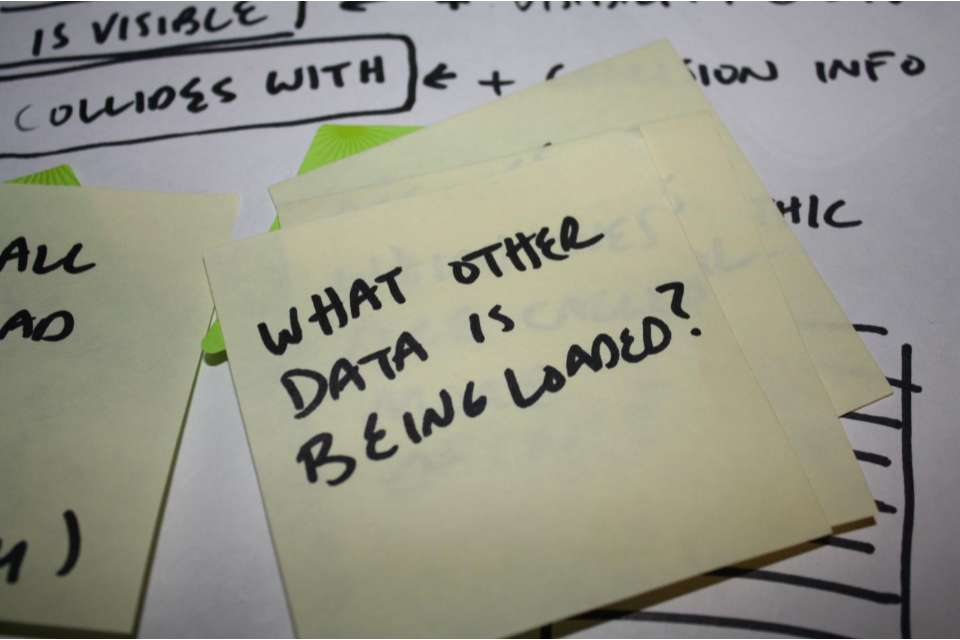 IS VISIBLE
COLLIDES WITH ← + INFO
ALL
AD
)
WHAT OTHER
DATA IS
BEING LOADED?